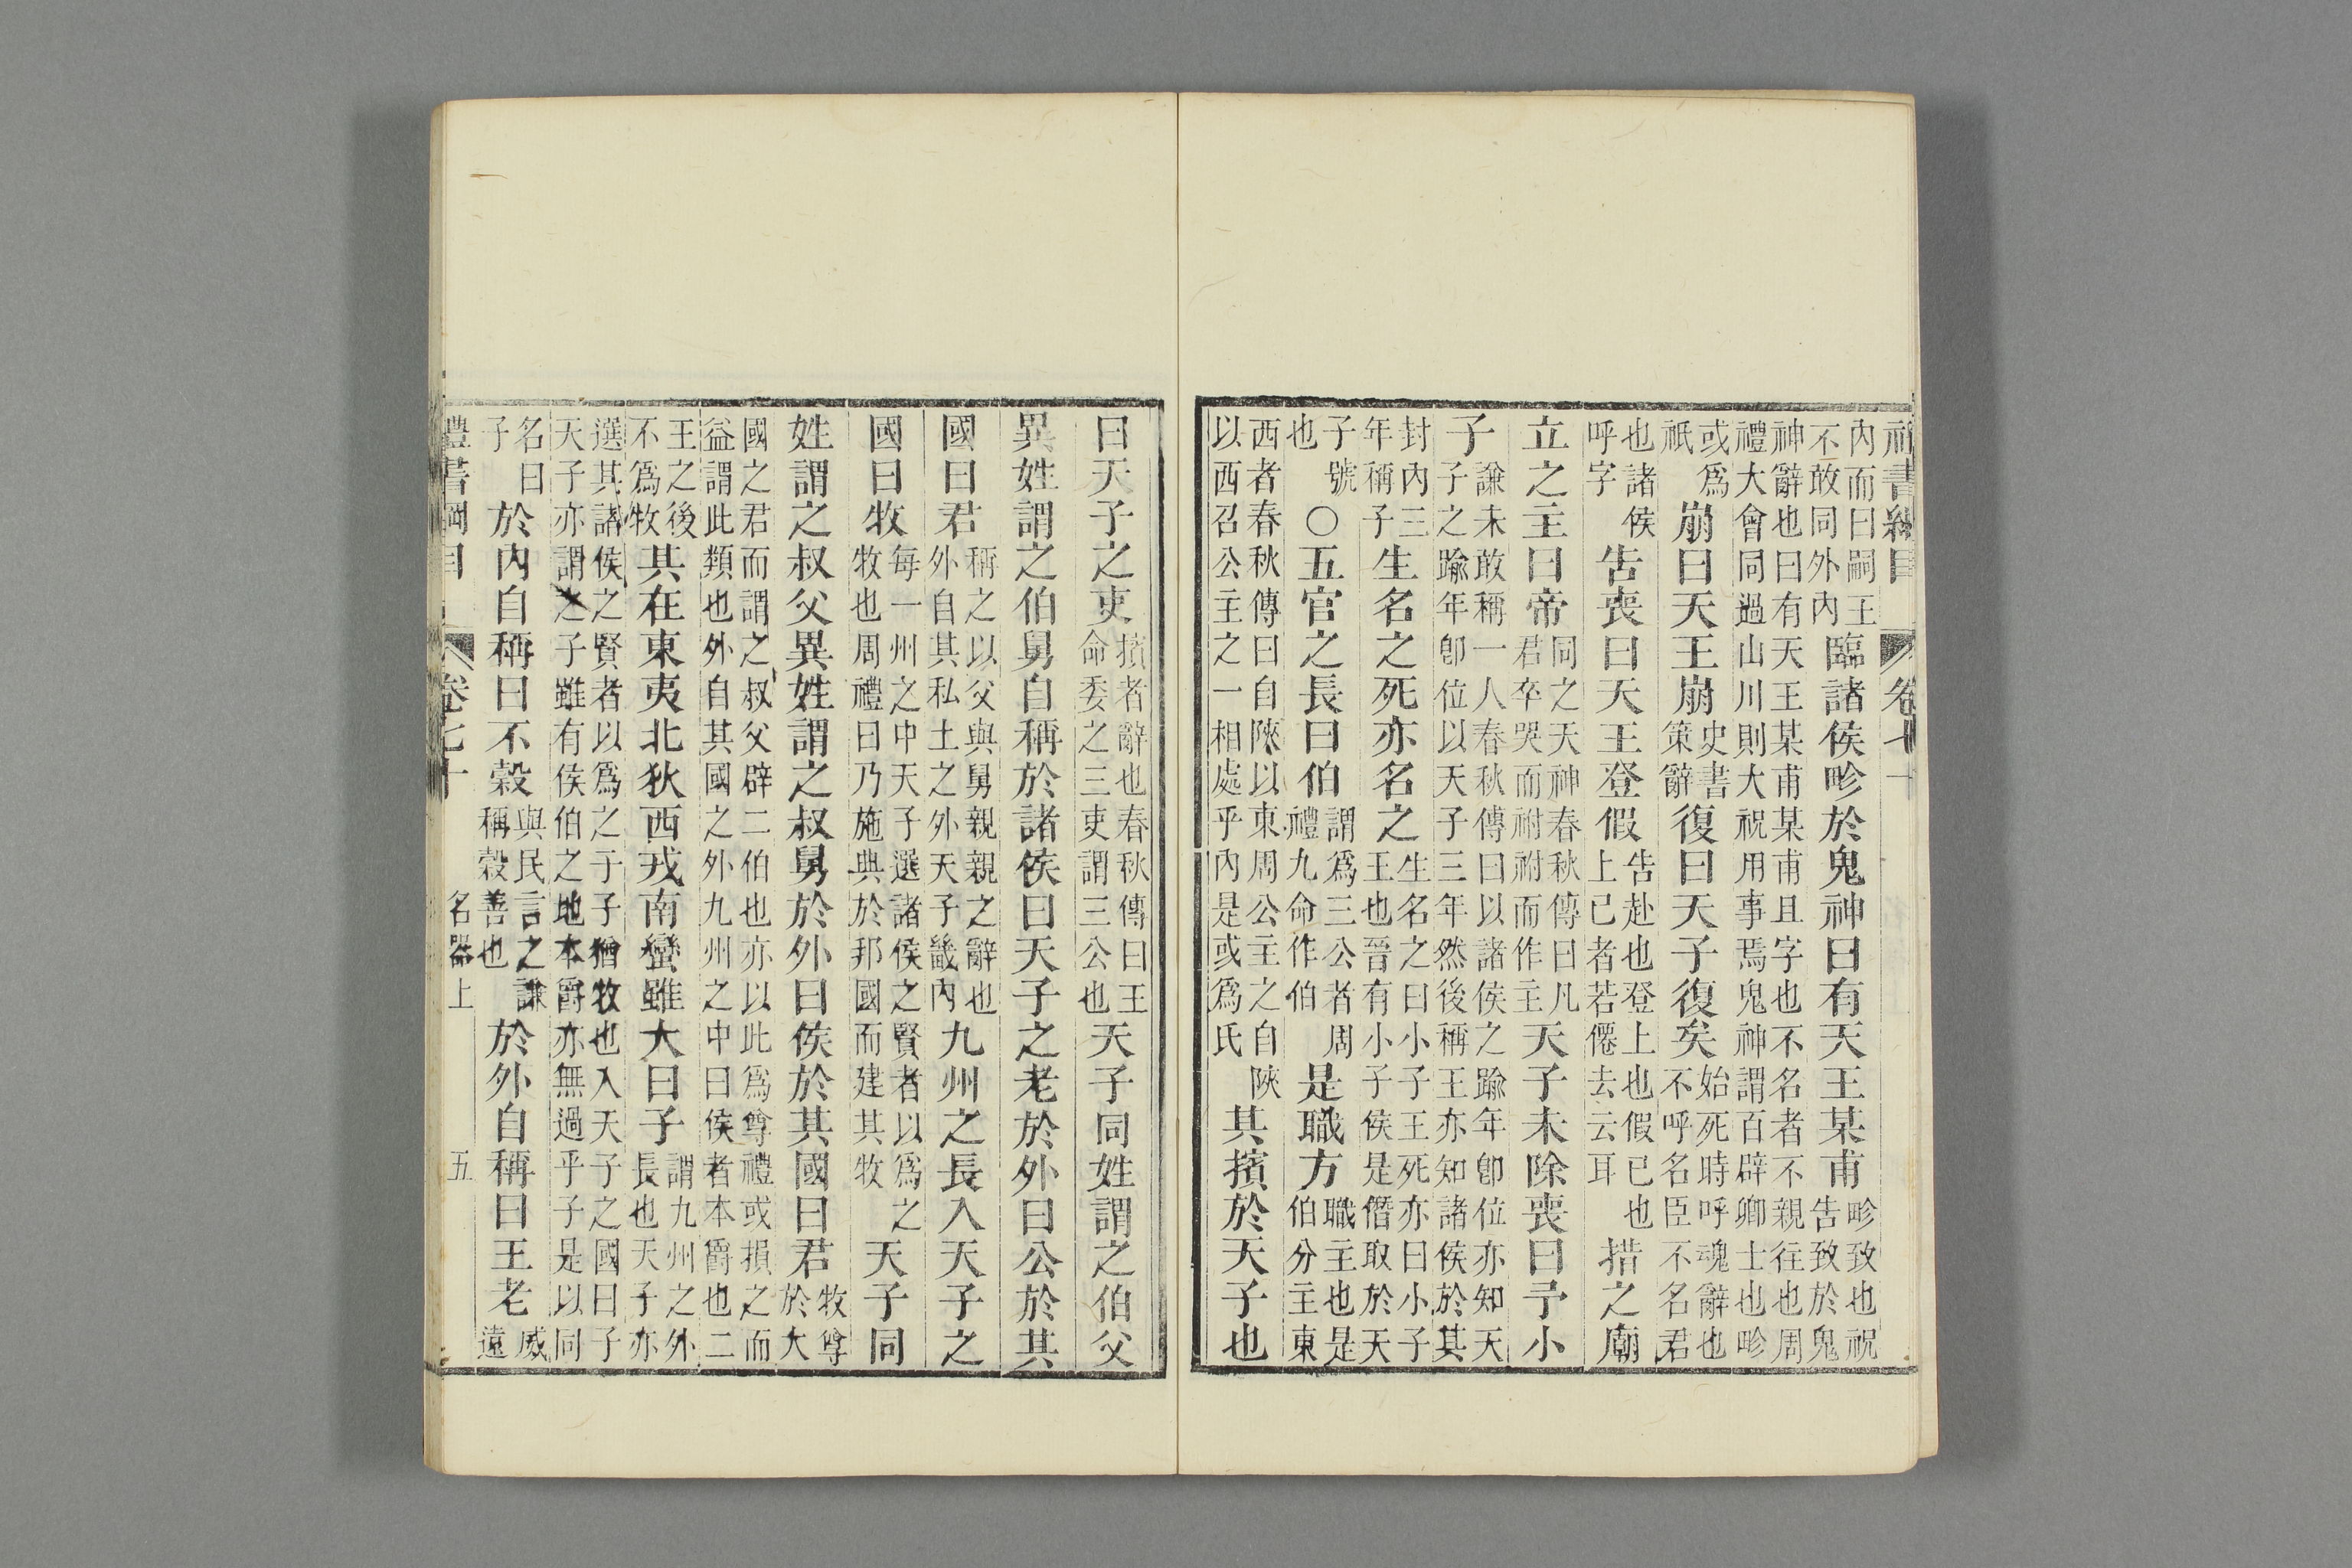 書綱目 卷七十
内而曰嗣王不敢同外内臨諸侯畛於鬼神曰有天王某甫畛致也祝告致於鬼
神辭也曰有天王某甫某甫且字也不名者不親往也周禮大會同過山川則大祝用事焉鬼神謂百辟卿士也畛
或爲祇崩曰天王崩史書策辭復曰天子復矣始死時呼魂辭也不呼名臣不名君
也諸侯呼字告喪曰天王登假告赴也登上也假已也上已者若僊去云耳措之廟
立之主曰帝同之天神春秋傳曰凡君卒哭而祔祔而作主天子未除喪曰予小
子謙未敢稱一人春秋傳曰以諸侯之踰年卽位亦知天子之踰年卽位以天子三年然後稱王亦知諸侯於其
封内三年稱子生名之死亦名之生名之曰小子王死亦曰小子王也晉有小子侯是僭取於天
子號也○五官之長曰伯謂爲三公者周禮九命作伯是職方職主也是伯分主東
西者春秋傳曰自陝以東周公主之自陝以西召公主之一相處乎内是或爲氏其擯於天子也
曰天子之吏擯者辭也春秋傳曰王命委之三吏謂三公也天子同姓謂之伯父
異姓謂之伯舅自稱於諸侯曰天子之老於外曰公於其
國曰君稱之以父與舅親親之辭也外自其私土之外天子畿内九州之長入天子之
國曰牧每一州之中天子選諸侯之賢者以爲之牧也周禮曰乃施典於邦國而建其牧天子同
姓謂之叔父異姓謂之叔舅於外曰侯於其國曰君牧尊於大
國之君而謂之叔父辟二伯也亦以此爲尊禮或損之而益謂此類也外自其國之外九州之中曰侯者本爵也二
王之後不爲牧其在東夷北狄西戎南蠻雖大曰子謂九州之外長也天子亦
選其諸侯之賢者以爲之子子猶牧也入天子之國曰子天子亦謂之子雖有侯伯之地本爵亦無過乎子是以同
名曰子於内自稱曰不穀與民言之謙稱穀善也於外自稱曰王老威遠
禮書綱目 卷七十 名器上 五